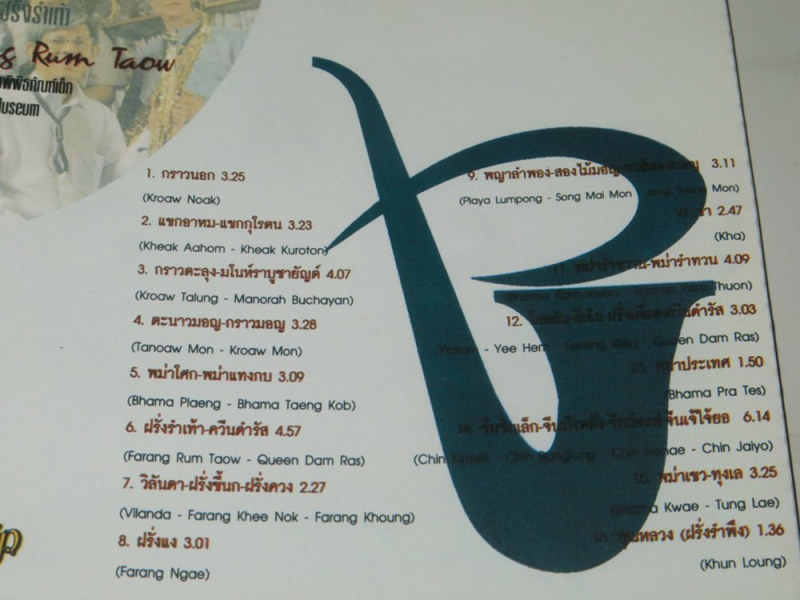 ฝรั่งรำเท้า
Rum Taow
พิพิธภัณฑ์เด็ก
Museum
1. กราวนอก 3.25
(Kroaw Noak)
2. แขกอาหม-แขกกุโรตน 3.23
(Kheak Aahom - Kheak Kuroton)
3. กราวตะลุง-มโนห์ราบูชายัญต์ 4.07
(Kroaw Talung - Manorah Buchayan)
4. ตะนาวมอญ-กราวมอญ 3.28
(Tanoaw Mon - Kroaw Mon)
5. พม่าโศก-พม่าแทงกบ 3.09
(Bhama Plaeng - Bhama Taeng Kob)
6. ฝรั่งรำเท้า-ควีนดำรัส 4.57
(Farang Rum Taow - Queen Dam Ras)
7. วิลันดา-ฝรั่งขี้นก-ฝรั่งควง 2.27
(Vilanda - Farang Khee Nok - Farang Khoung)
8. ฝรั่งแง 3.01
(Farang Ngae)
9. พญาลำพอง-สองไม้มอญ 3.11
(Playa Lumpong - Song Mai Mon - Mon)
10. ข่า 2.47
(Kha)
11. พม่ารำขวาน-พม่ารำทวน 4.09
(Bhama Ram Kwan - Bhama Ram Thuon)
12. ควีนดำรัส 3.03
- Yee Hem - Farang - Queen Dam Ras)
13. พม่าประเทศ 1.50
(Bhama Pra Tes)
14. จีนเจ้าไจ๋ยอ 6.14
(Chin - Chin - Chin - Chin Jaiyo)
15. พม่าเขว-ทุงเล 3.25
(Bhama Kwae - Tung Lae)
16. คุณหลวง (ฝรั่งรำพึง) 1.36
(Khun Loung)